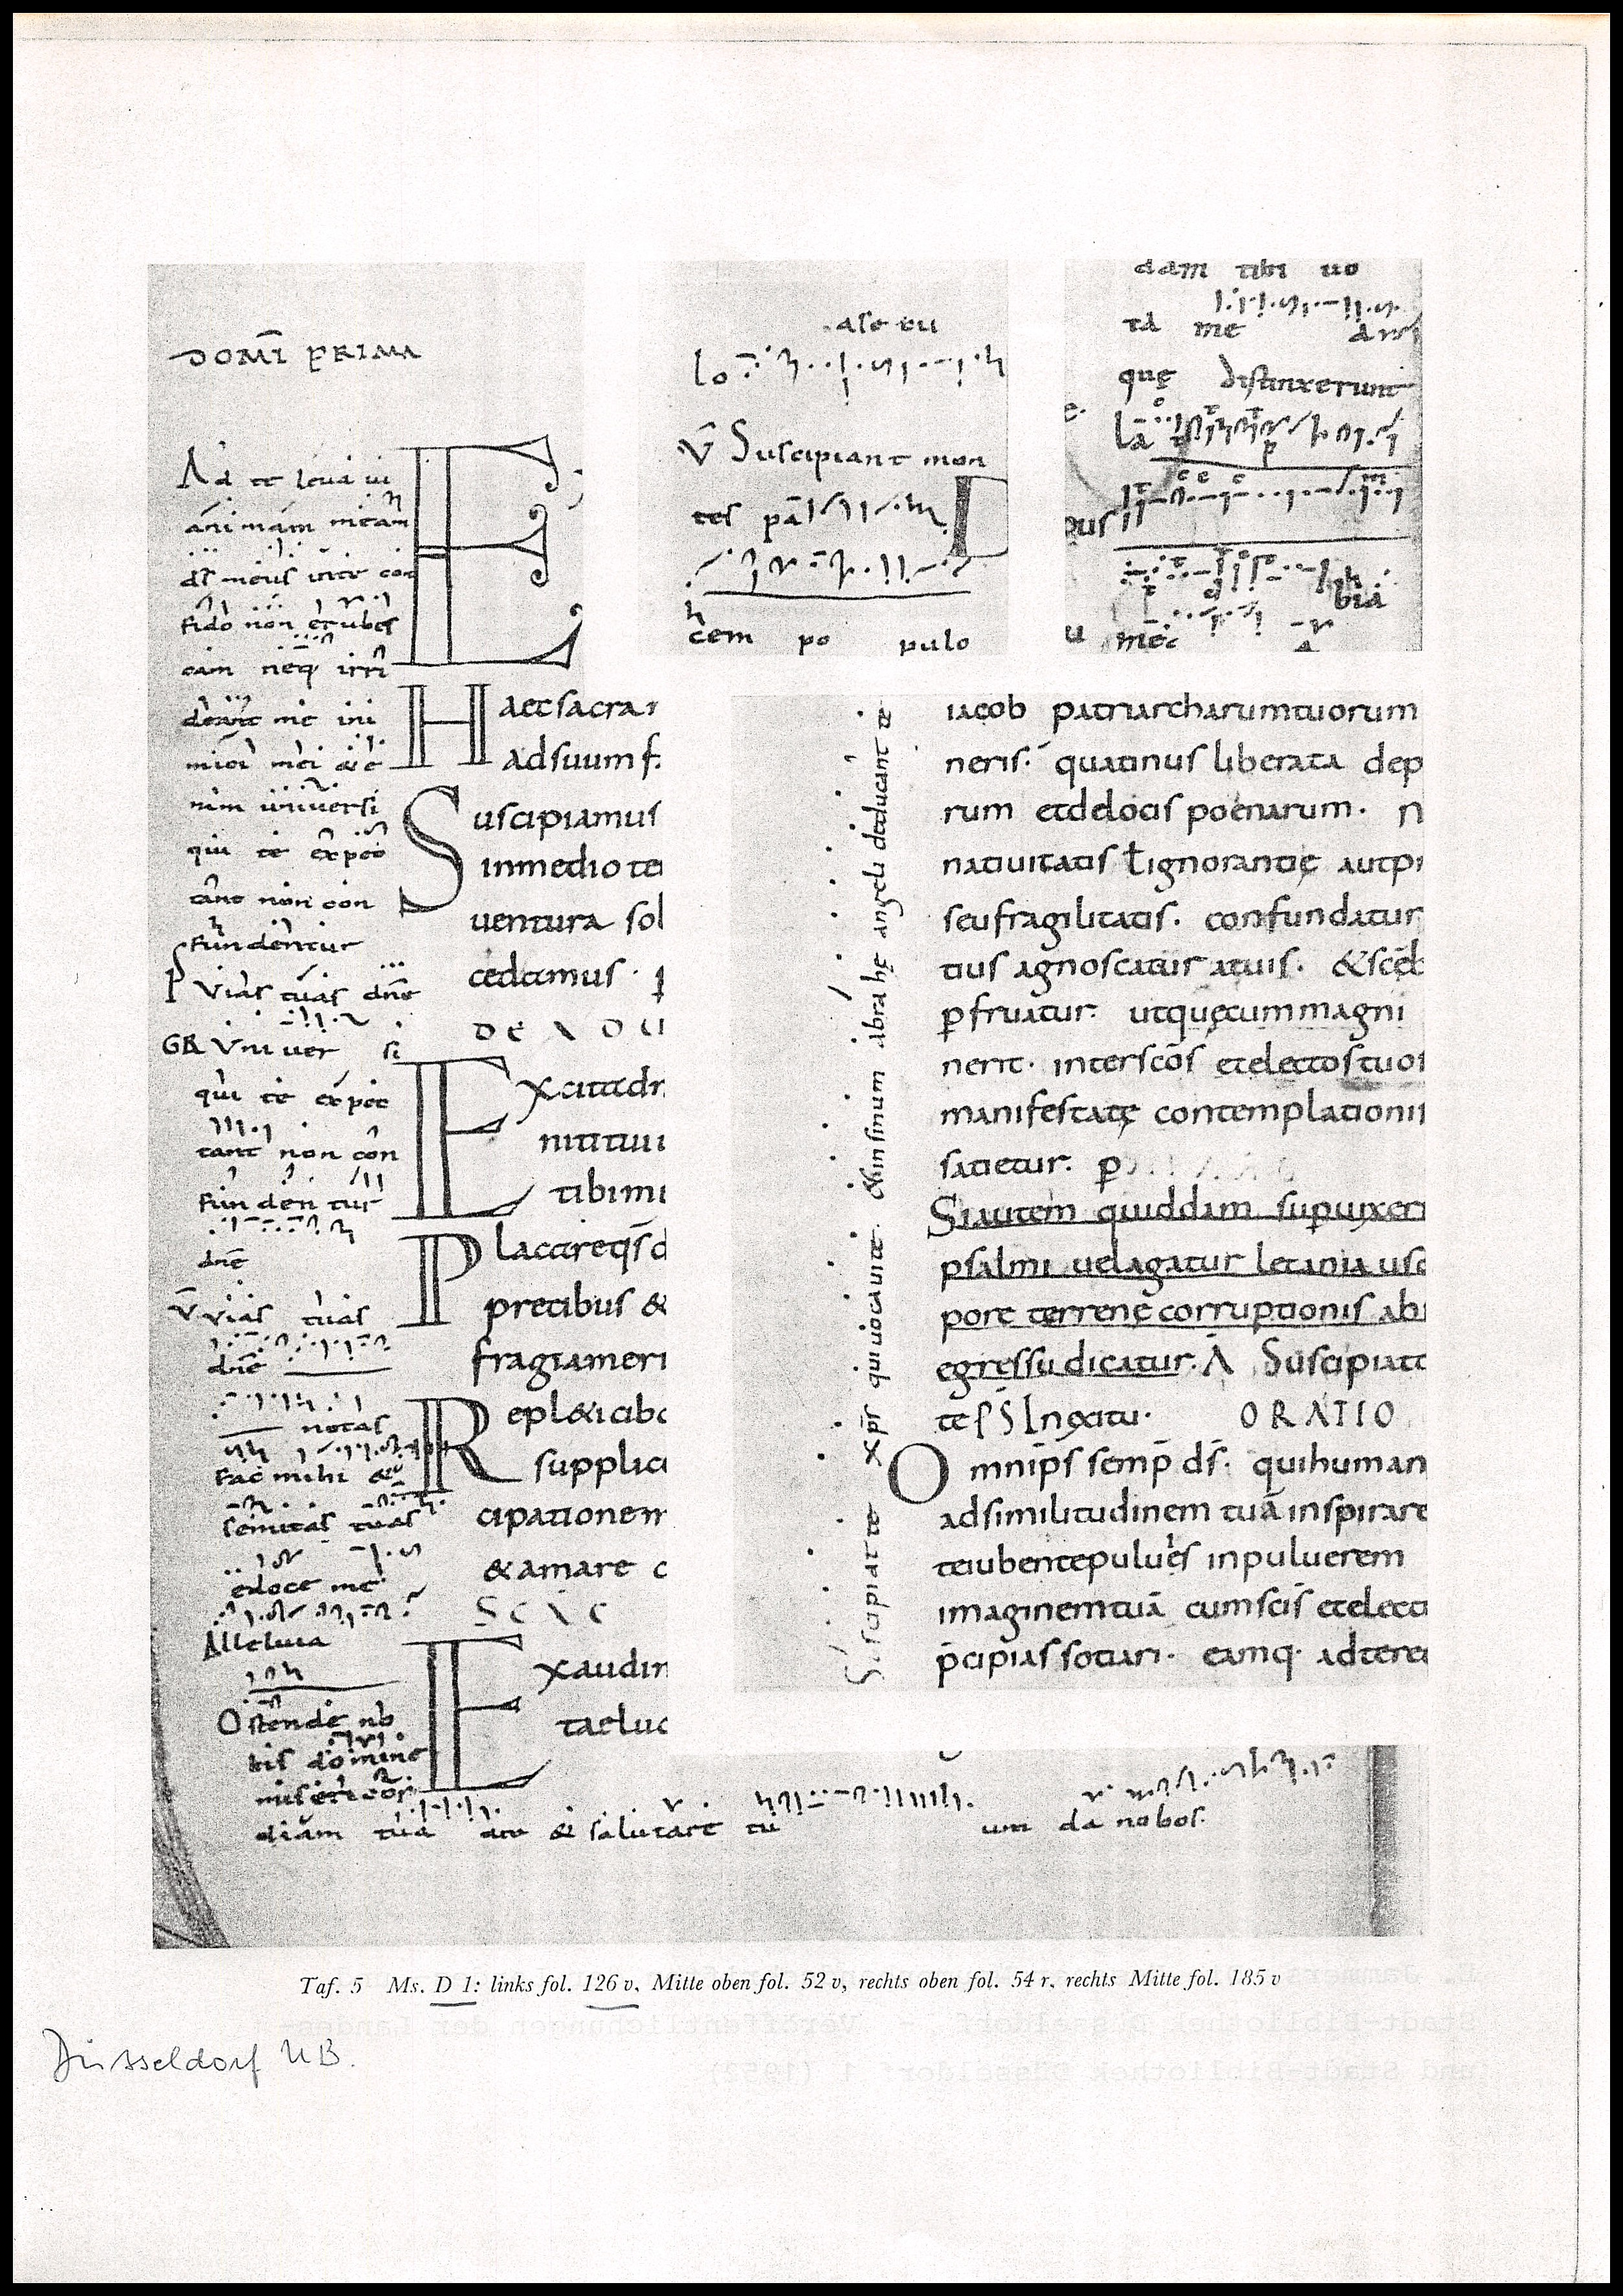 DOMI PRIMA
Ad te leuaui
animam meam
ds meus in te con
fido non erubes
cam neq irri
deant me ini
mici mei &e
nim uniuersi
qui te expec
tant non con
fundentur
PS Vias tuas dne
GR Vniuer si
qui te expec
tant non con
fun den tur
dne
V Vias tuas
dne
notas
Fac mihi &
semitas tuas
edoce me
Alleluia
Ostende no
bis domine
misericor
diam tua &
salutare tu um da nobis.
Haec sacra
ad suum f
Suscipiamus
in medio te
uentura sol
cedamus
Excitadn
Placare qs d
precibus &
fragia meri
Repl&i cibo
supplic
cipationem
& amare c
Exaudi
lo
V Suscipiant mon
tes pa
cem po pulo
dam tibi uo
ta me
que distinxerunt
la
bia
mec
Suscipiat te xps qui uocauit te &in sinum abrahe angeli deducant te
iacob patriarcharum tuorum
neris. quatinus liberata dep
rum et de locis poenarum. n
natiuitatis t ignorantie aut p
seu fragilitatis. confundatur
tius agnoscatur a tuis. &sceb
p fruatur. ut que cum magni
nerit. inter scos et electos tuos
manifestate contemplationi
satietur. p
Si autem quiddam superuixeri
psalmi uel agatur letania usq
pore terrene corruptionis ab
egressu dicatur. A Suscipiat
te PS In exitu. ORATIO
Omnips semp ds. qui human
ad similitudinem tua inspirare
te iubente puluis in puluerem
imaginem tua cum scis et elect
pcipias sociari. eamq. ad tere
Taf. 5 Ms. D 1: links fol. 126 v, Mitte oben fol. 52 v, rechts oben fol. 54 r, rechts Mitte fol. 185 v
Düsseldorf UB.